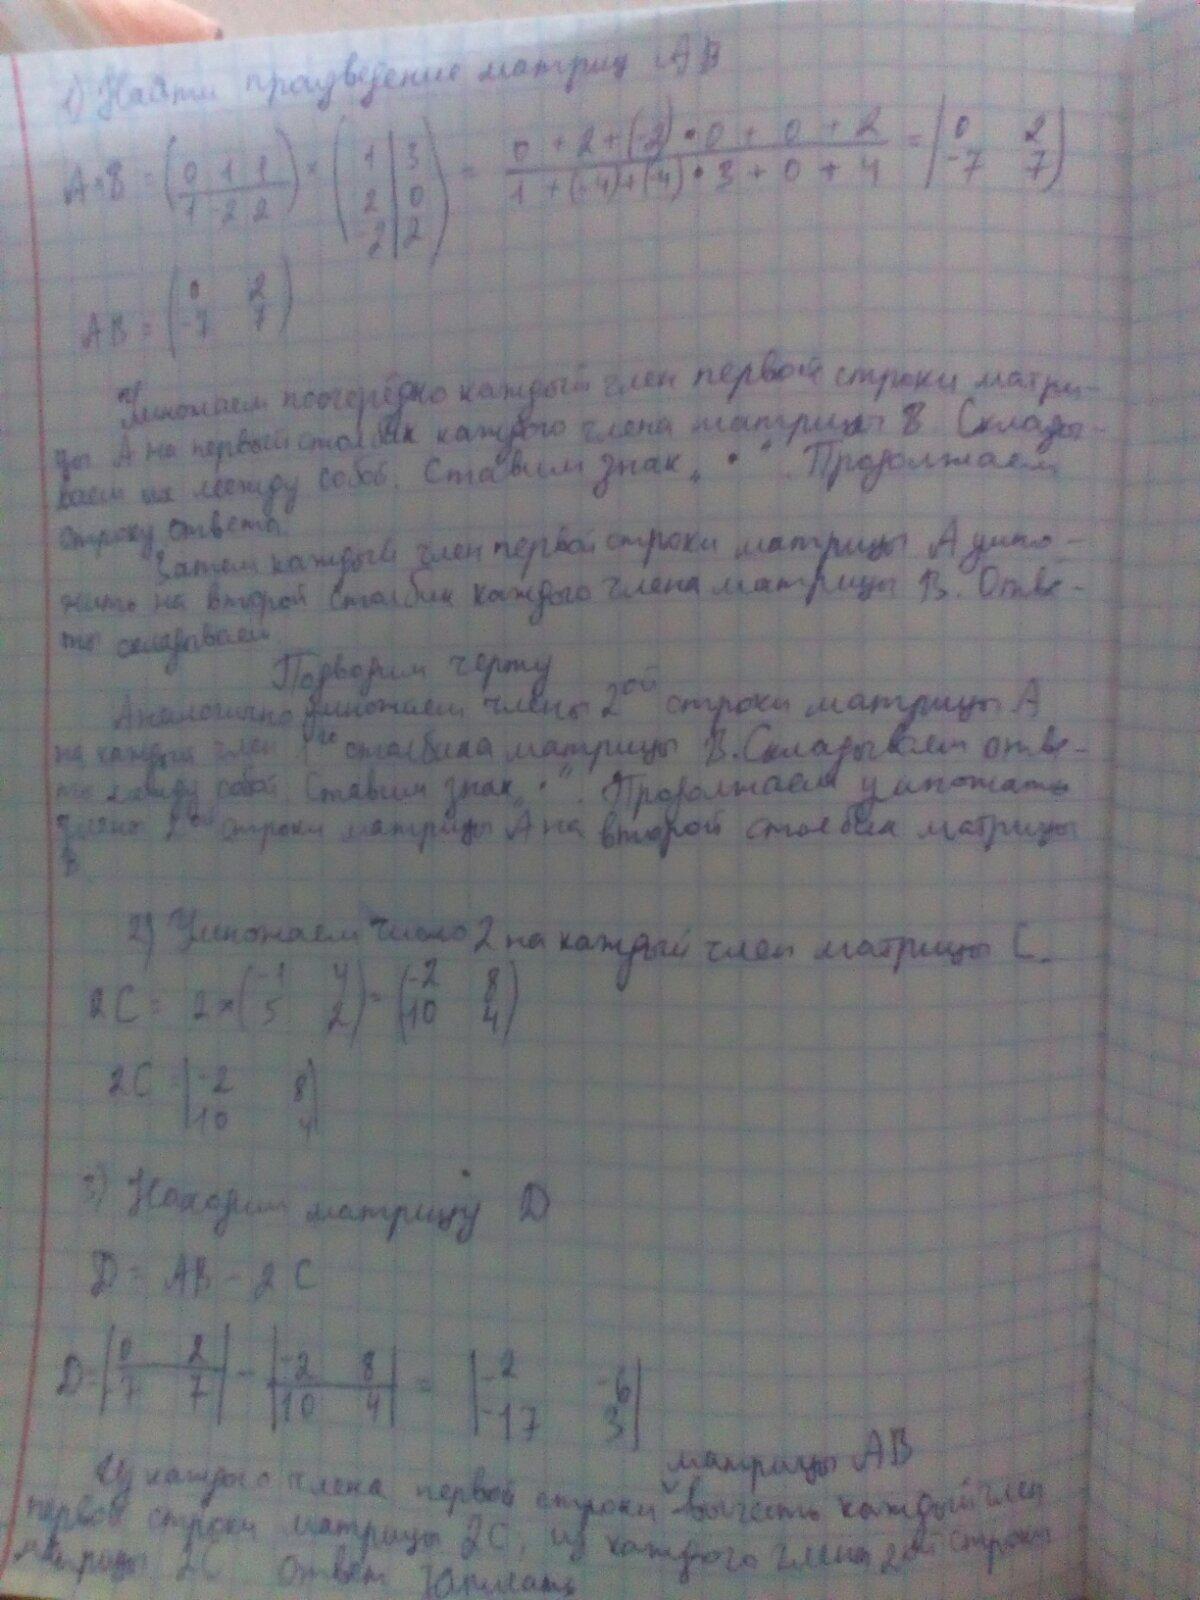 1) Найти произведение матриц AB
A×B = (0 1 1 / 1 -2 2) × (1 | 3 / 2 | 0 / -2 | 2) = 0 + 2 + (-2) • 0 + 0 + 2 / 1 + (-4) + (-4) • 3 + 0 + 4 = |0 2 / -7 7)
AB = (0 2 / -7 7)
Умножаем поочерёдно каждый член первой строки матри-
цы A на первый столбик каждого члена матрицы B. Склады-
ваем их между собой. Ставим знак „•“. Продолжаем
строку ответа.
Затем каждый член первой строки матрицы A умно-
жить на второй столбик каждого члена матрицы B. Отве-
ты складываем.
Подводим черту
Аналогично умножаем члены 2ой строки матрицы A
на каждый член 1го столбика матрицы B. Складываем отве-
ты между собой. Ставим знак „•“. Продолжаем умножать
члены 2ой строки матрицы A на второй столбик матрицы
B
2) Умножаем число 2 на каждый член матрицы C.
2C = 2×(-1 4 / 5 2) = (-2 8 / 10 4)
2C = |-2 8 / 10 4|
3) Находим матрицу D
D = AB - 2C
D = |0 2 / -7 7| - |-2 8 / 10 4| = |-2 -6 / -17 3|
матрицы AB
Из каждого члена первой строки вычесть каждый член
первой строки матрицы 2C, из каждого члена 2ой строки
матрицы 2C Ответ записать